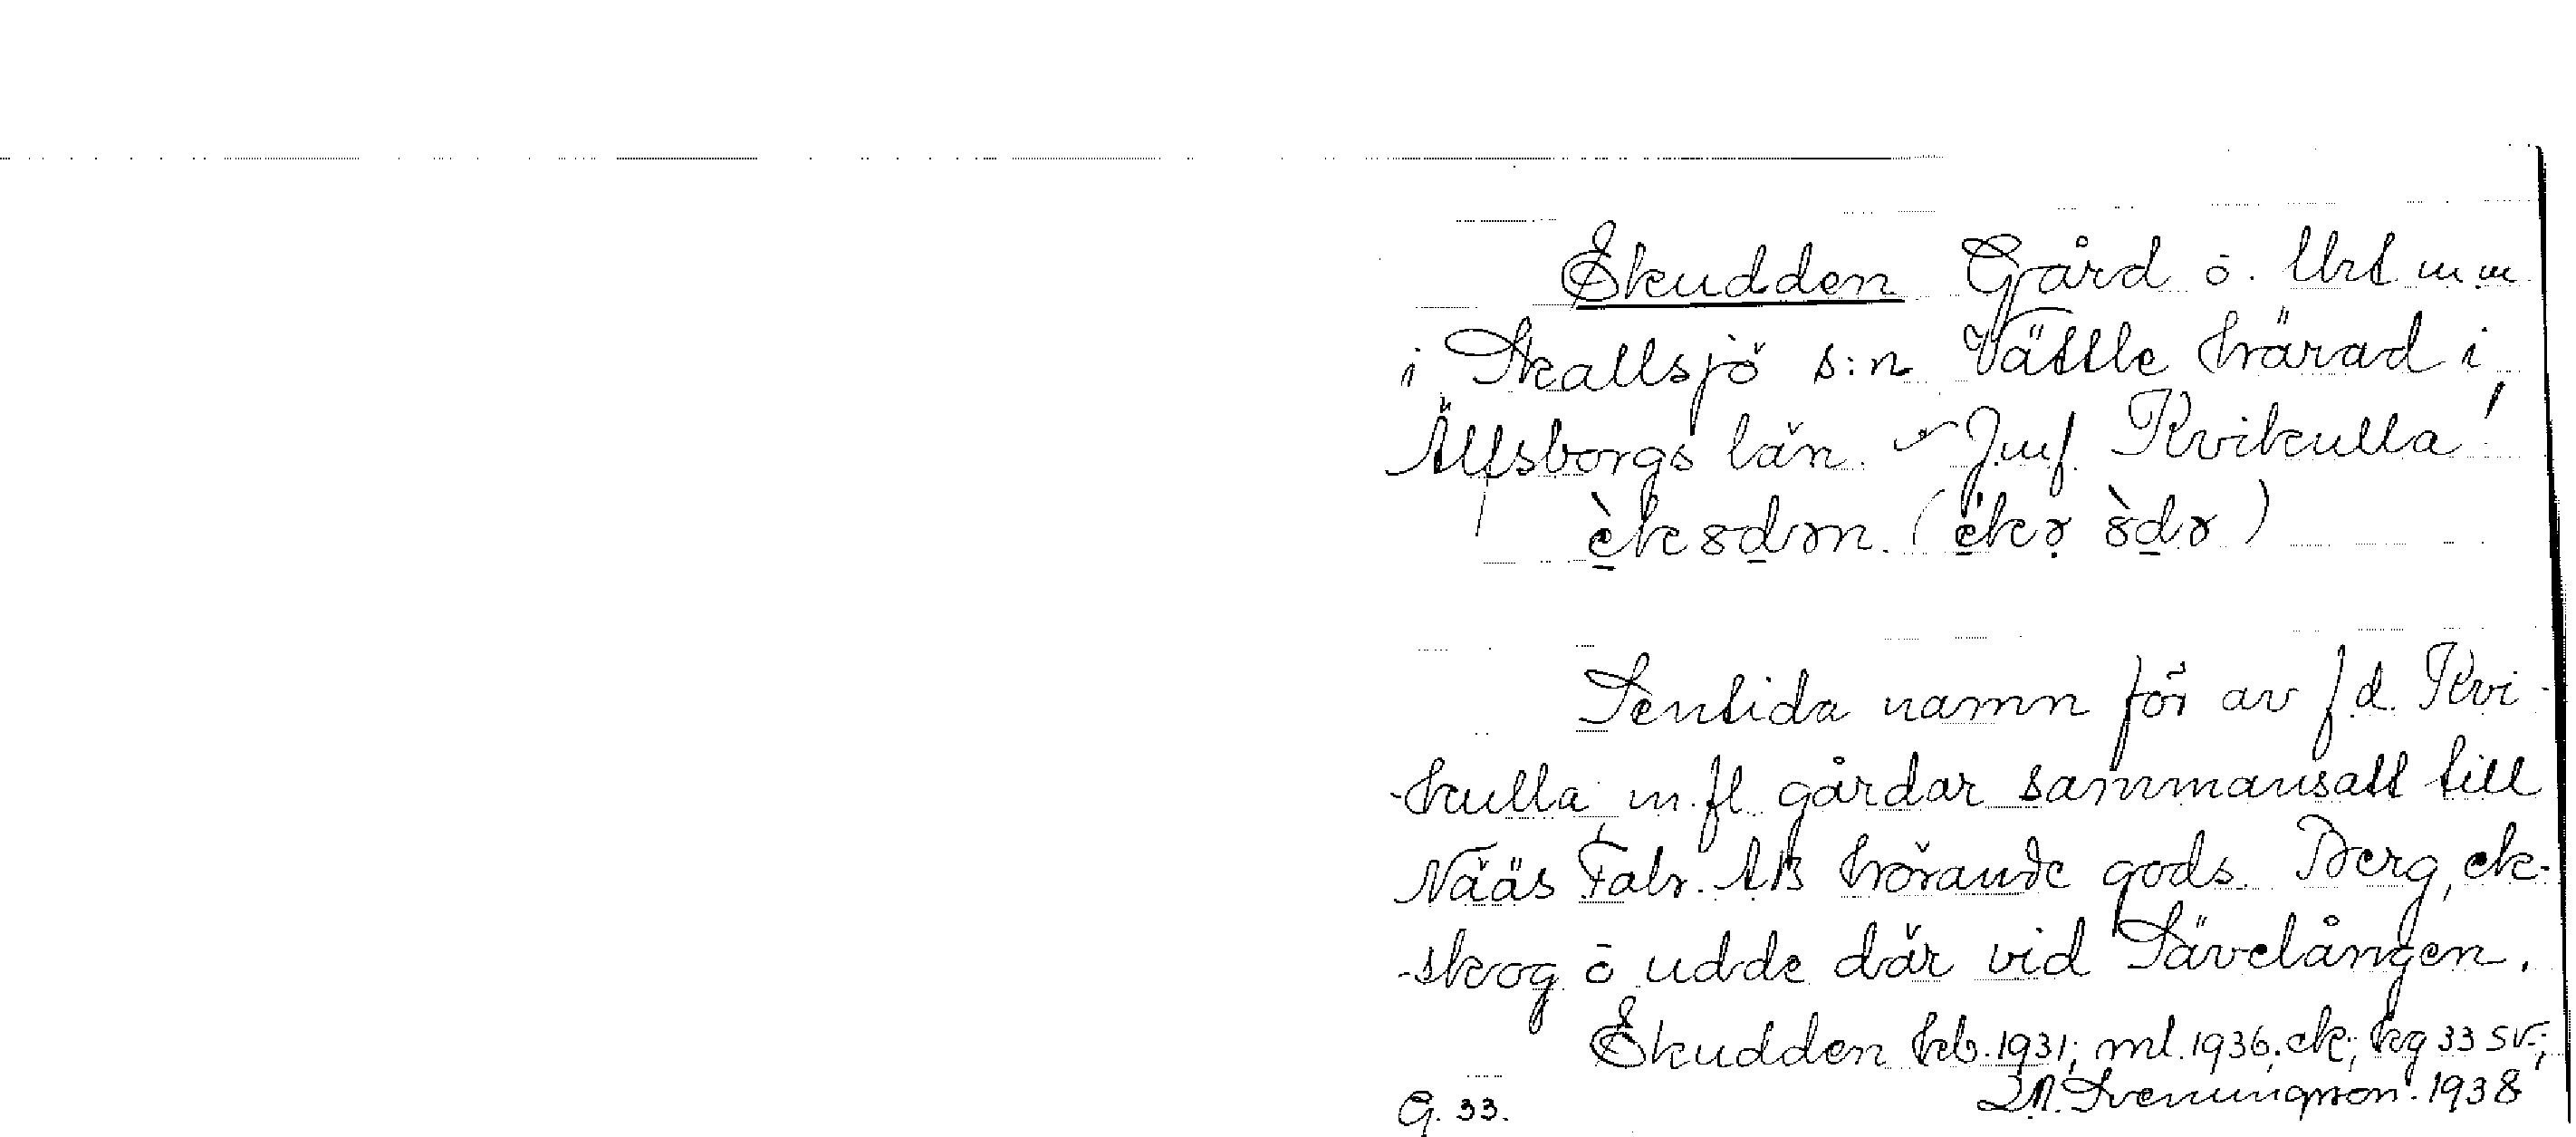 Ekudden Gård o. Urt m.m
i Skallsjö s:n Vättle härad i
Älfsborgs län. Jmf. Kvikulla!
Sentida namn för av f.d. Kvi-
-kulla m.fl. gårdar sammansatt till
Nääs Fabr. AB hörande gods. Berg, ek-
-skog o udde där vid Sävelången.
Ekudden kb. 1931; ml. 1936; ek; kg 33 SV;
G. 33. Svenungsson. 1938